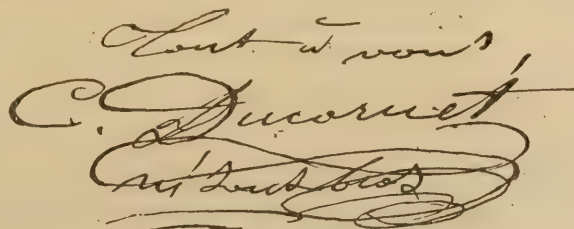 Tout à vous,
C. Ducornet
né sans bras